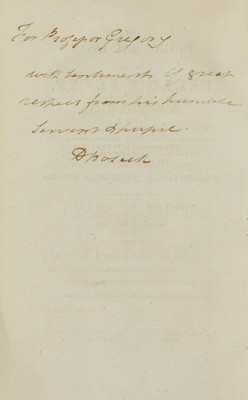 For Professor Gregory
with sentiments of great
respect from his humble
Servant & pupil.
D Hosack